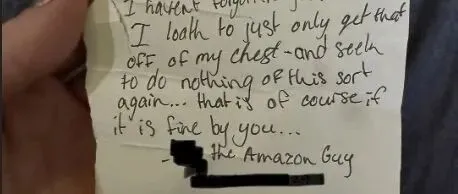 I havent
I loath to just only get that
off of my chest - and seek
to do nothing of this sort
again... that is of course if
it is fine by you...
- the Amazon Guy